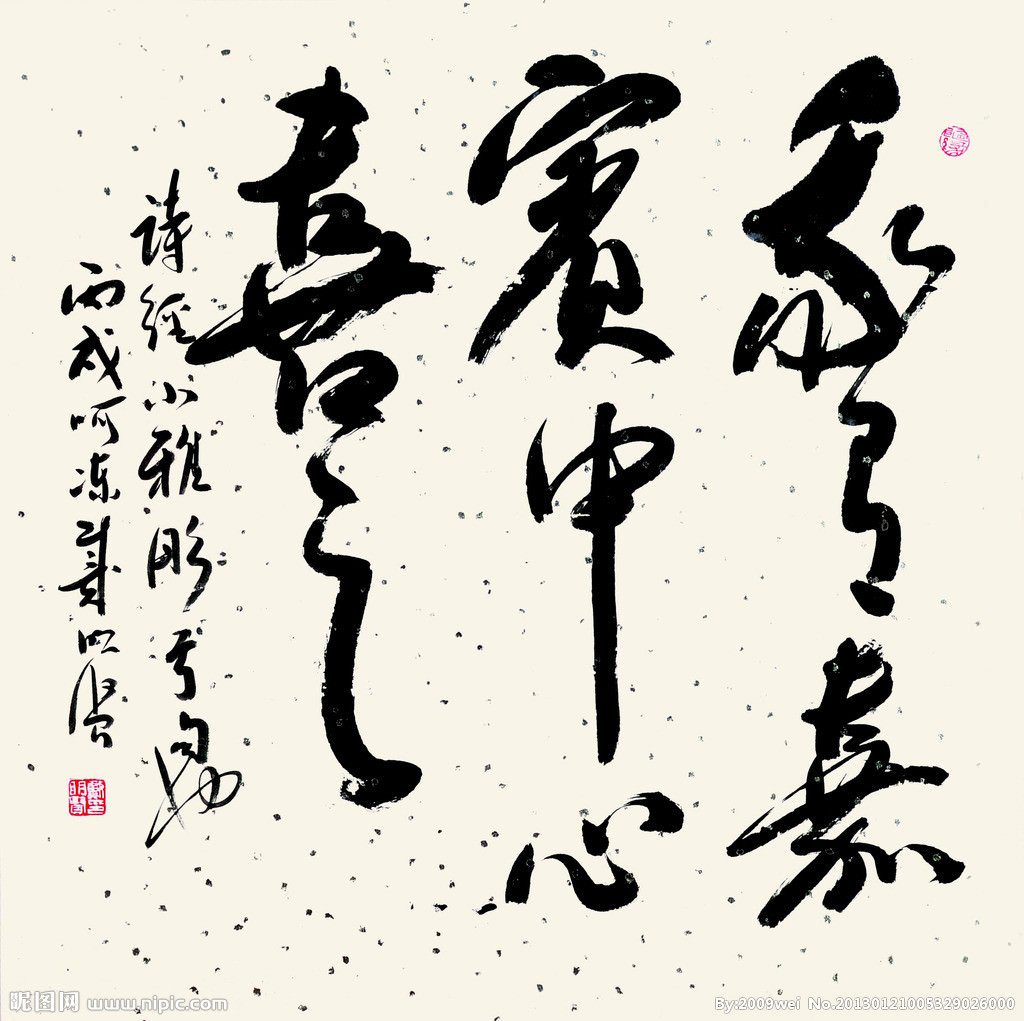 我有嘉
賓中心
喜之
詩經小雅彤弓
丙戌呵凍戴明賢
昵图网 www.nipic.com
By:2009wei No.20130121005329026000